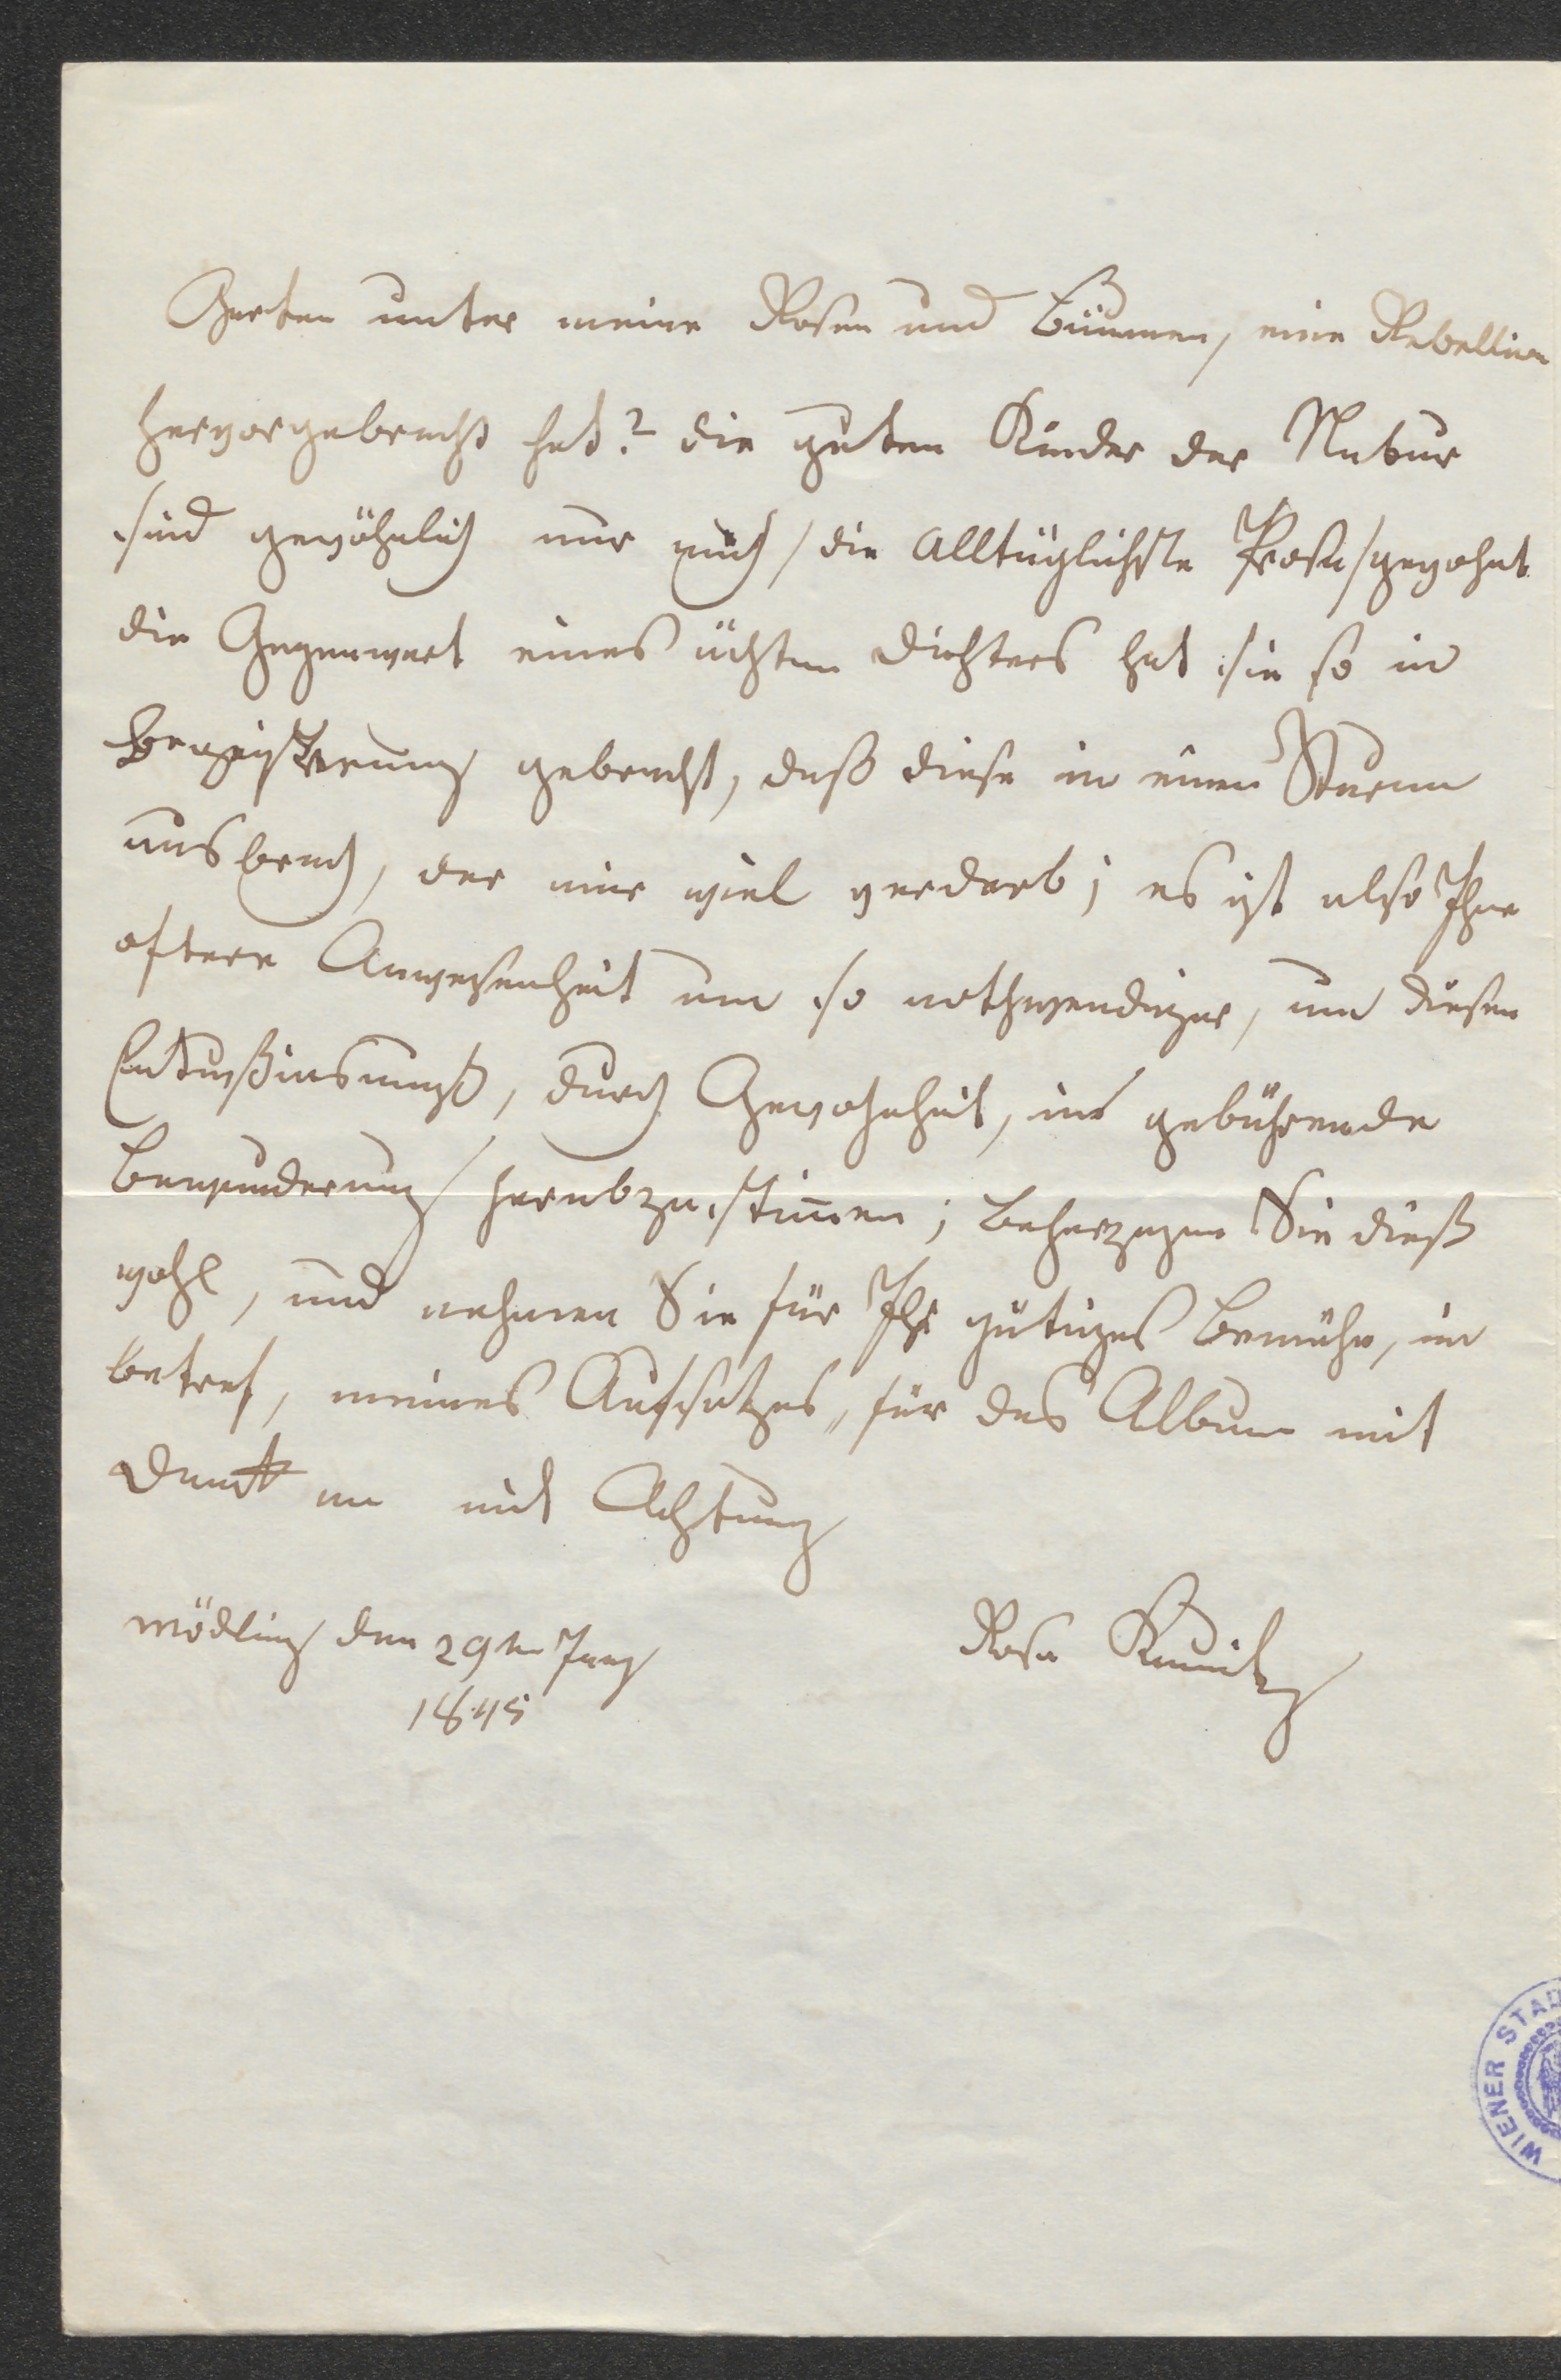 Garten unter meine Rosen und Bäumen, eine Rebellion
hervorgebracht hat? die guten Kinder der Natur
sind gewöhnlich nur mich / die alltäglichste Prosa / gewohnt
die Gegenwart eines ächten Dichters hat sie so in
Begeisterung gebracht, daß diese in einen Sturm
ausbrach, der mir viel verdarb; es ist also Ihre
oftere Anwesenheit um so nothwendiger, um diesen
Entusiasmuß, durch Gewohnheit, in gebührende
Bewunderung herabzustimen; beherzigen Sie dieß
wohl, und nehmen Sie für Ihr gütiges Bemühn, in
betref, meines Aufsatzes, für das Album mit
Dank an mit Achtung
Mödling den 29ten Juny
1845
Rosa
WIENER STAD